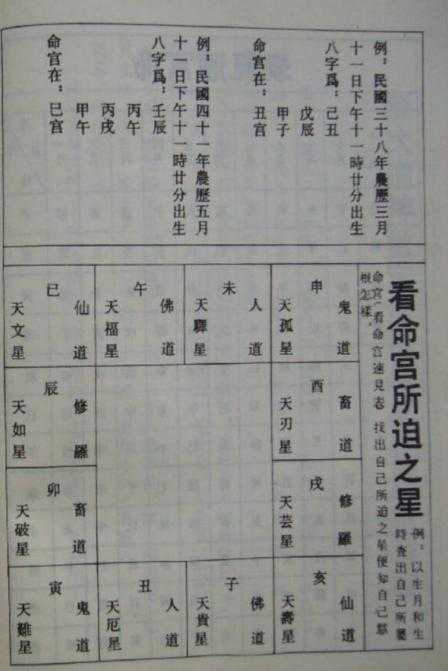 例：民國三十八年農歷三月
十一日下午十一時廿分出生
八字爲：己丑
戊辰
甲子
命宮在：丑宮
例：民國四十一年農歷五月
十一日下午十一時廿分出生
八字爲：壬辰
丙午
丙戌
甲午
命宮在：巳宮
看命宮所迫之星
例：以生月和生
時查出自己所屬
命宮（看命宮速見表）找出自己所迫之星便知自己慧
根怎樣。
鬼道
申
天孤星
人道
未
天驛星
佛道
午
天福星
仙道
巳
天文星
畜道
酉
天刃星
修羅
辰
天如星
修羅
戌
天芸星
畜道
卯
天破星
仙道
亥
天壽星
佛道
子
天貴星
人道
丑
天厄星
鬼道
寅
天難星